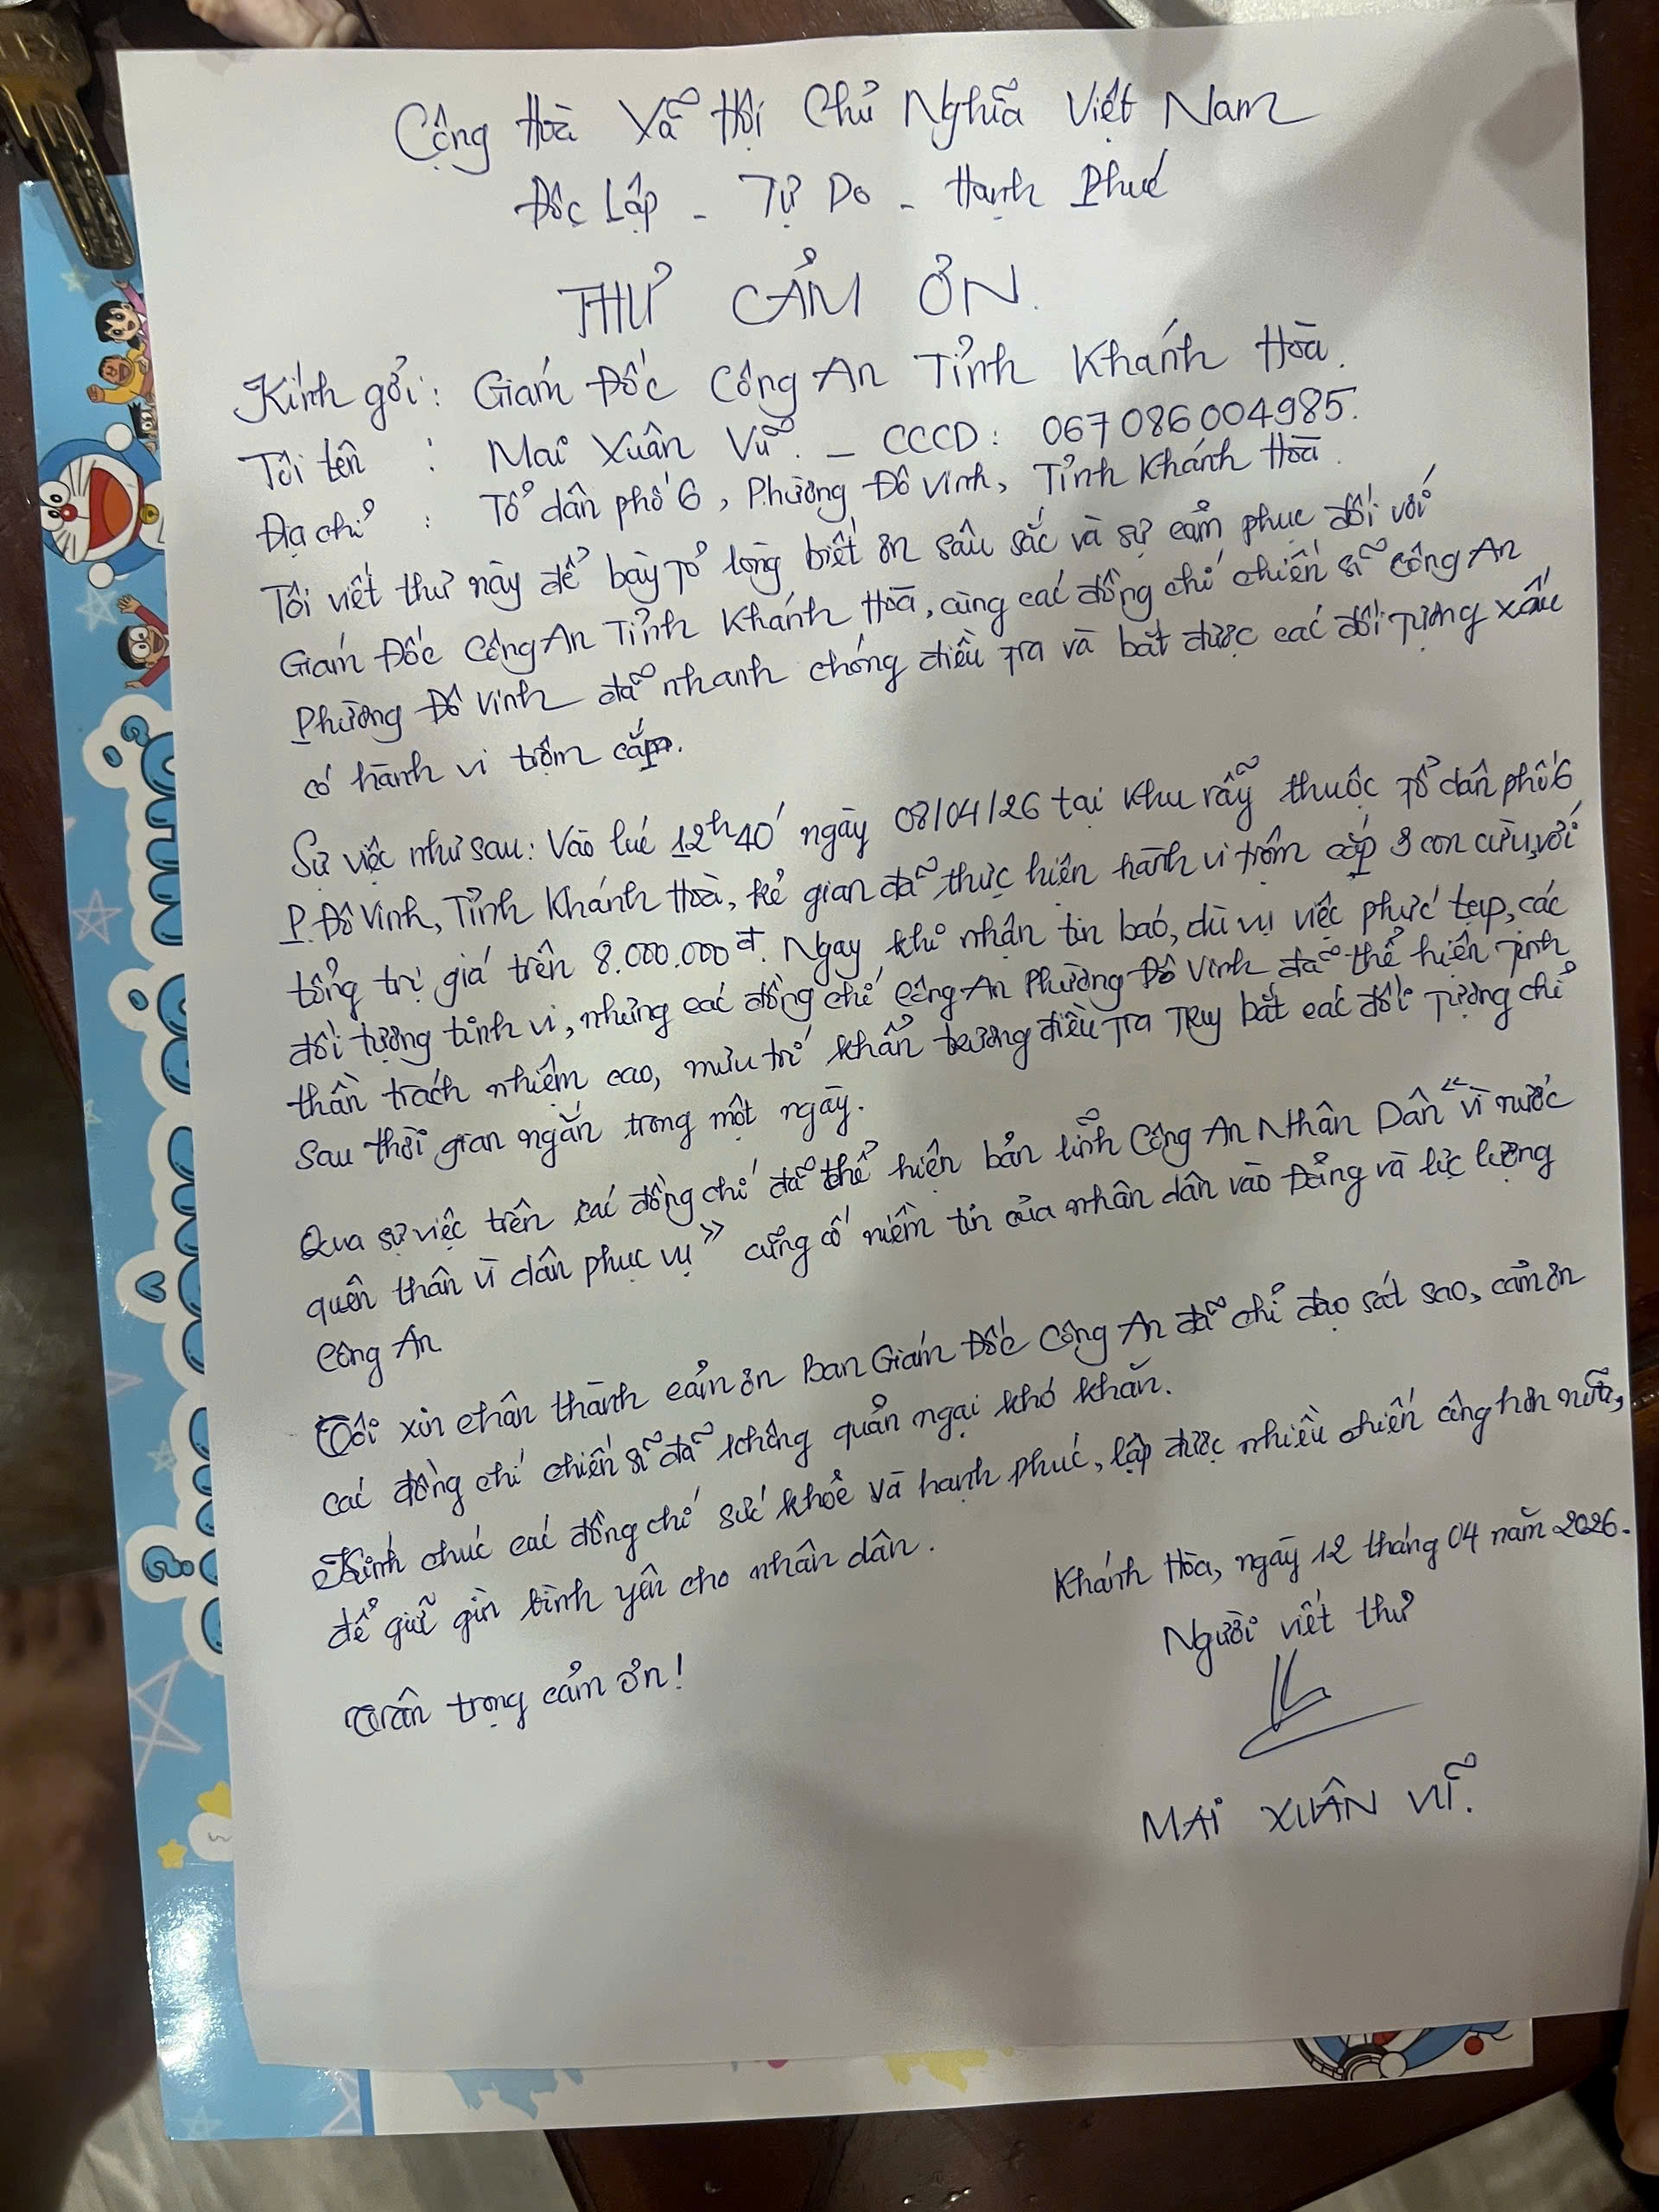 Cộng Hoà Xã Hội Chủ Nghĩa Việt Nam
Độc Lập - Tự Do - Hạnh Phúc
THƯ CẢM ƠN.
Kính gởi: Giám Đốc Công An Tỉnh Khánh Hòa.
Tôi tên : Mai Xuân Vũ. - CCCD: 067086004985.
Địa chỉ : Tổ dân phố 6, Phường Đô Vinh, Tỉnh Khánh Hoà.
Tôi viết thư này để bày tỏ lòng biết ơn sâu sắc và sự cảm phục đối với
Giám Đốc Công An Tỉnh Khánh Hoà, cùng các đồng chí chiến sĩ Công An
Phường Đô Vinh đã nhanh chóng điều tra và bắt được các đối tượng xấu
có hành vi trộm cắp.
Sự việc như sau: Vào lúc 12h40' ngày 08/04/26 tại khu rẫy thuộc tổ dân phố 6
P. Đô Vinh, Tỉnh Khánh Hoà, kẻ gian đã thực hiện hành vi trộm cắp 3 con cừu, với
tổng trị giá trên 8.000.000đ. Ngay khi nhận tin báo, dù vụ việc phức tạp, các
đối tượng tinh vi, nhưng các đồng chí Công An Phường Đô Vinh đã thể hiện tinh
thần trách nhiệm cao, mưu trí khẩn trương điều tra truy bắt các đối tượng chỉ
sau thời gian ngắn trong một ngày.
Qua sự việc trên các đồng chí đã thể hiện bản lĩnh Công An Nhân Dân "vì nước
quên thân vì dân phục vụ" củng cố niềm tin của nhân dân vào Đảng và lực lượng
Công An
Tôi xin chân thành cảm ơn Ban Giám Đốc Công An đã chỉ đạo sát sao, cảm ơn
các đồng chí chiến sĩ đã không quản ngại khó khăn.
Kính chúc các đồng chí sức khoẻ và hạnh phúc, lập được nhiều chiến công hơn nữa,
để giữ gìn bình yên cho nhân dân.
Khánh Hòa, ngày 12 tháng 04 năm 2026.
Người viết thư
Trân trọng cảm ơn!
MAI XUÂN VŨ.